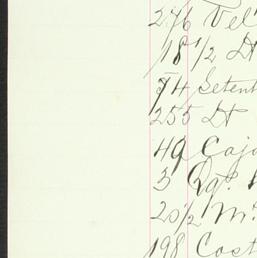 276 Vel
18 1/2 Dt
74 Setent
255 Dt
49 Caja
3 Qqs.
20 1/2 Ms.
198 Cost